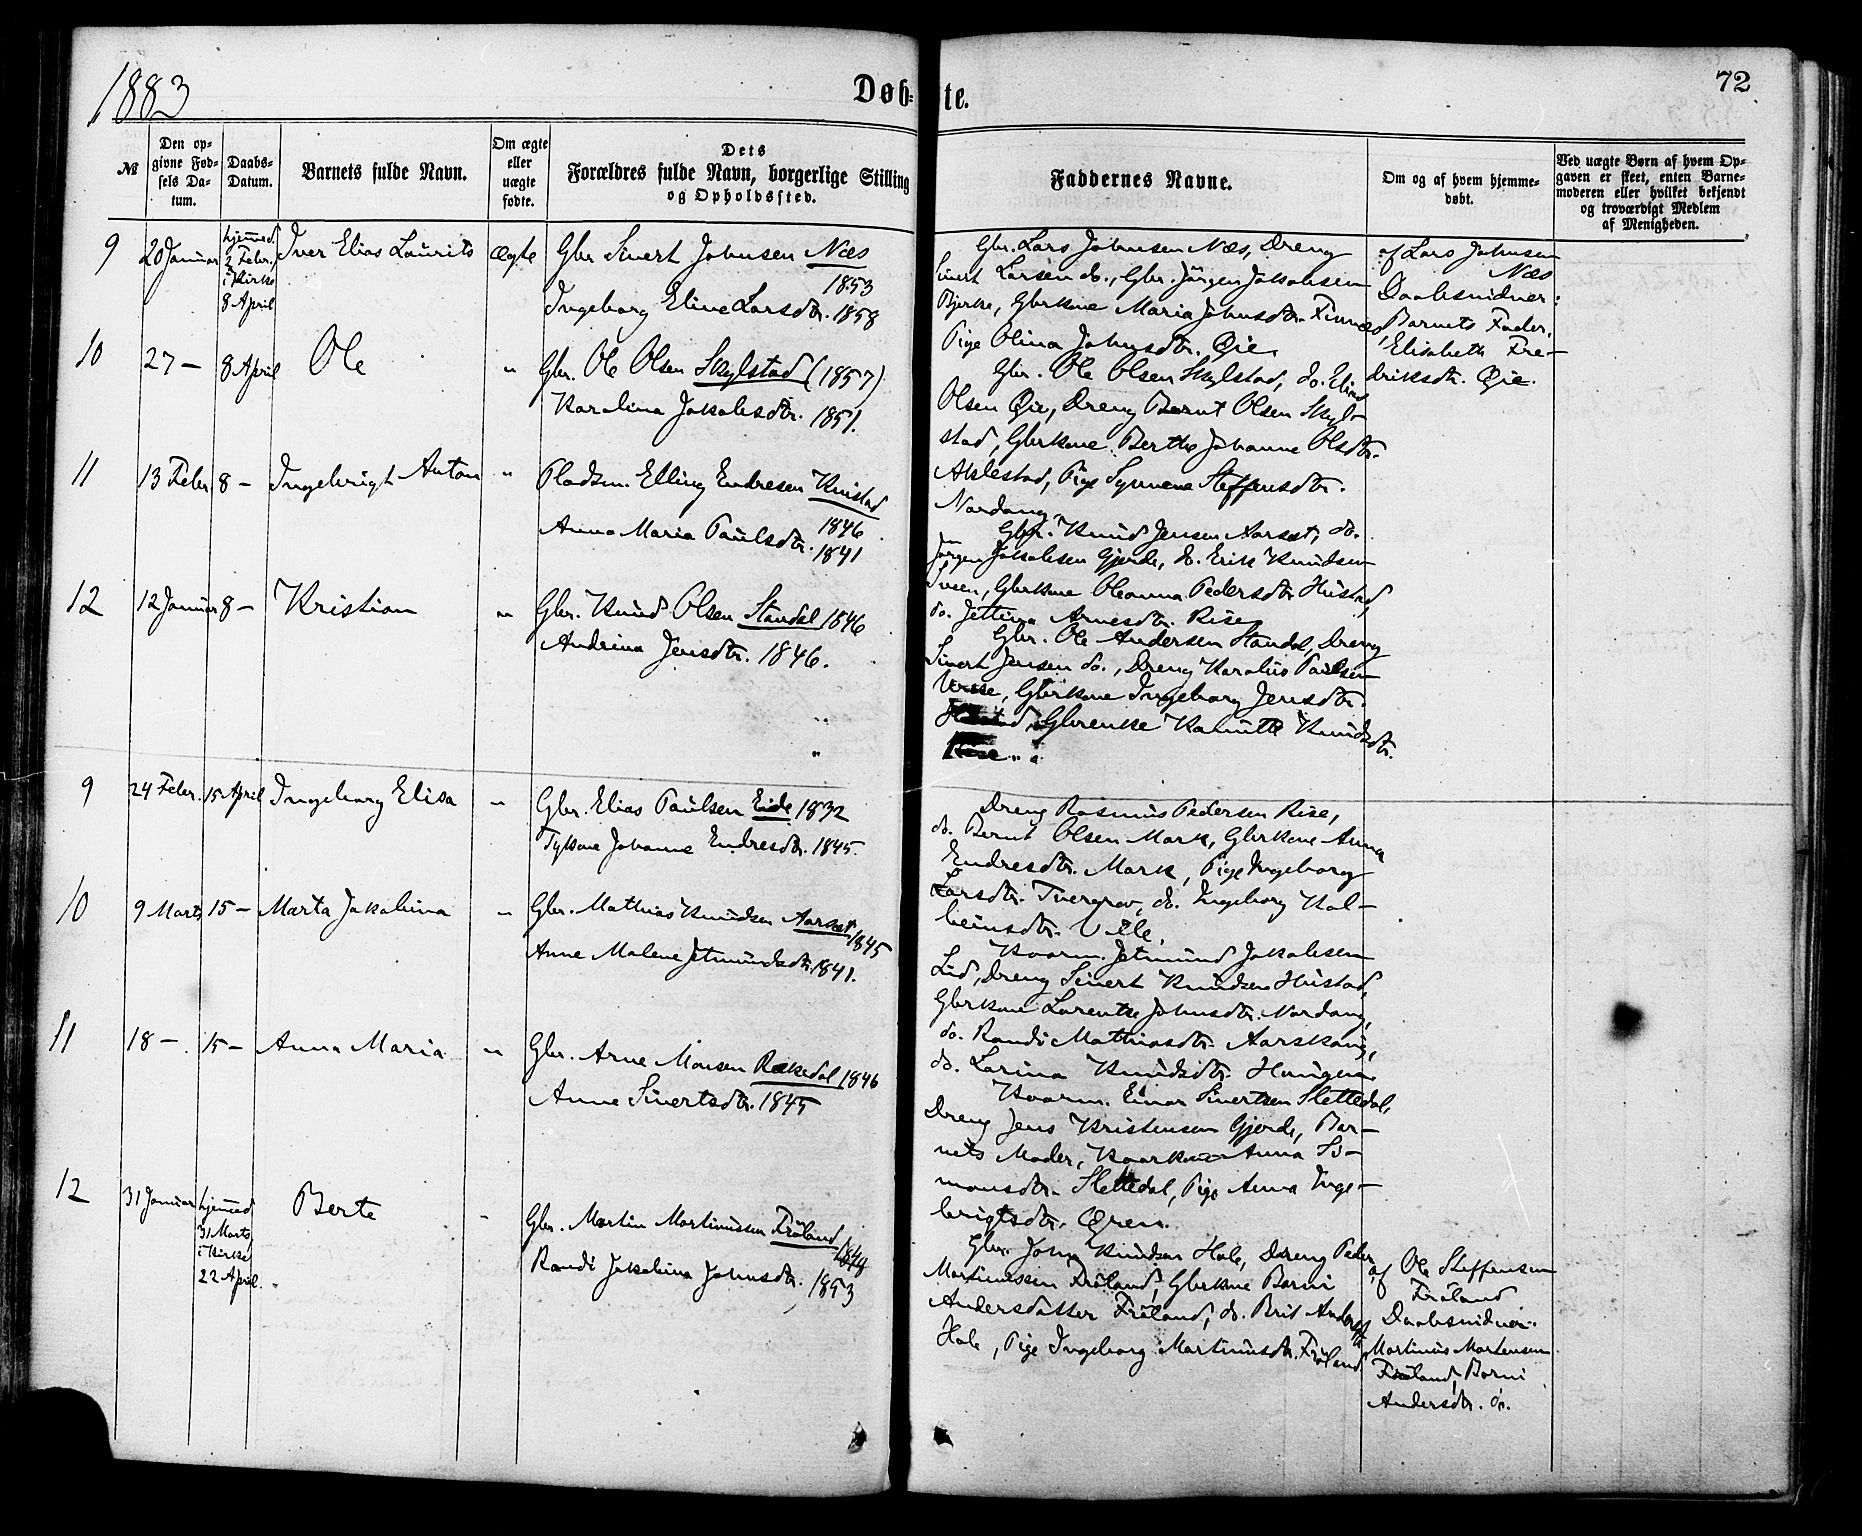 1883
Døb-
te.
72
№
Den op-
givne Fød-
sels Da-
tum.
Daabs-
Datum.
Barnets fulde Navn.
Om ægte
eller
uægte
fødte.
Dets
Forældres fulde Navn, borgerlige Stilling
og Opholdssted.
Faddernes Navne.
Om og af hvem hjemme-
døbt.
Ved uægte Børn af hvem Op-
gaven er skeet, enten Barne-
moderen eller hvilket bekjendt
og troværdigt Medlem
af Menigheden.
9
20 Januar
hjemmed.
2 Febr.
i Kirke
8 April
Iver Elias Laurits
Ægte
Gbr Sivert Johnsen Næs
1853
Ingeborg Eline Larsdtr. 1858
Gbr. Lars Johnsen Næs, Dreng
Sivert Larsen do., Gbr. Jørgen Jakobsen
Bjerke, Gbrkone Maria Johnsdtr. Finnes,
Pige Olina Johnsdtr. Øie.
af Lars Johnsen
Næs
Daabsvidner:
Barnets Fader,
Elisabeth Fre-
driksdtr. Øie.
10
27 —
8 April
Ole
"
Gbr. Ole Olsen Skylstad (1857)
Karolina Jakobsdtr. 1851.
Gbr. Ole Olsen Skylstad, do. Elias
Olsen Øie, Dreng Bernt Olsen Skyl-
stad, Gbrkone Berthe Johanne Olsdtr.
Akslestad, Pige Synneve Steffensdtr.
Nordang.
11
13 Febr
8 —
Ingebrigt Anton
"
Pladsm. Elling Endresen Knistad
1846
Anna Maria Paulsdtr. 1841
Gbr. Knud Jensen Aarset, do.
Jørgen Jakobsen Gjerde, do. Erik Knudsen
Sveen, Gbrkone Oleanna Pedersdtr Hustad,
do. Jettina Arnesdtr. Rise
12
12 Januar
8 —
Kristian
"
Gbr. Knud Olsen Standal 1846
Andrina Jensdtr. 1846.
Gbr. Ole Andersen Standal, Dreng
Sivert Jensen do., Dreng Karolus Paulsen
Urke, Gbrkone Ingeborg Jensdtr.
Gbrenke Kanutte Knudsdtr.
Rise
9
24 Febr.
15 April
Ingeborg Elisa
"
Gbr. Elias Paulsen Eide 1832
Johanne Endresdtr. 1845.
Dreng Rasmus Pedersen Rise,
do. Bernt Olsen Mork, Gbrkone Anna
Endresdtr. Mork, Pige Ingeborg
Larsdtr. Tvergrov, do. Ingeborg Kol-
beinsdtr.
10
9 Marts
15 —
Marta Jakobina
"
Gbr. Mathias Knudsen Aarset 1845
Anne Malene Jetmundsdtr. 1841.
Kaarm. Jetmund Jakobsen
Lid, Dreng Sivert Knudsen Hustad,
Gbrkone Larentse Johnsdtr. Nordang,
do. Randi Mathiasdtr. Aarskaug,
do. Larina Knudsdtr. Haugen
11
18 —
15 —
Anna Maria
"
Gbr. Arne Monsen Rekedal 1846
Anne Sivertsdtr. 1845
Kaarm. Einar Sivertsen Slettedal,
Dreng Jens Kristensen Gjerde, Bar-
nets Moder, Kaarkone Anna Si-
monsdtr. Slettedal, Pige Anna Inge-
brigtsdtr. Ø̈ren.
12
31 Januar
hjemmed
31 Marts
i Kirke
22 April.
Berte
"
Gbr. Martin Martinussen Frøland
1848
Randi Jakobina Johnsdtr. 1853
Gbr. John Knudsen Hole, Dreng Peder
Martinussen Frøland, Gbrkone Berni
Andersdatter Frøland, do. Brit Andersdtr
Hole, Pige Ingeborg Martinusdtr. Frøland
af Ole Steffensen
Frøland
Daabsvidner:
Martinus Mortensen
Frøland, Berni
Andersdtr. do.